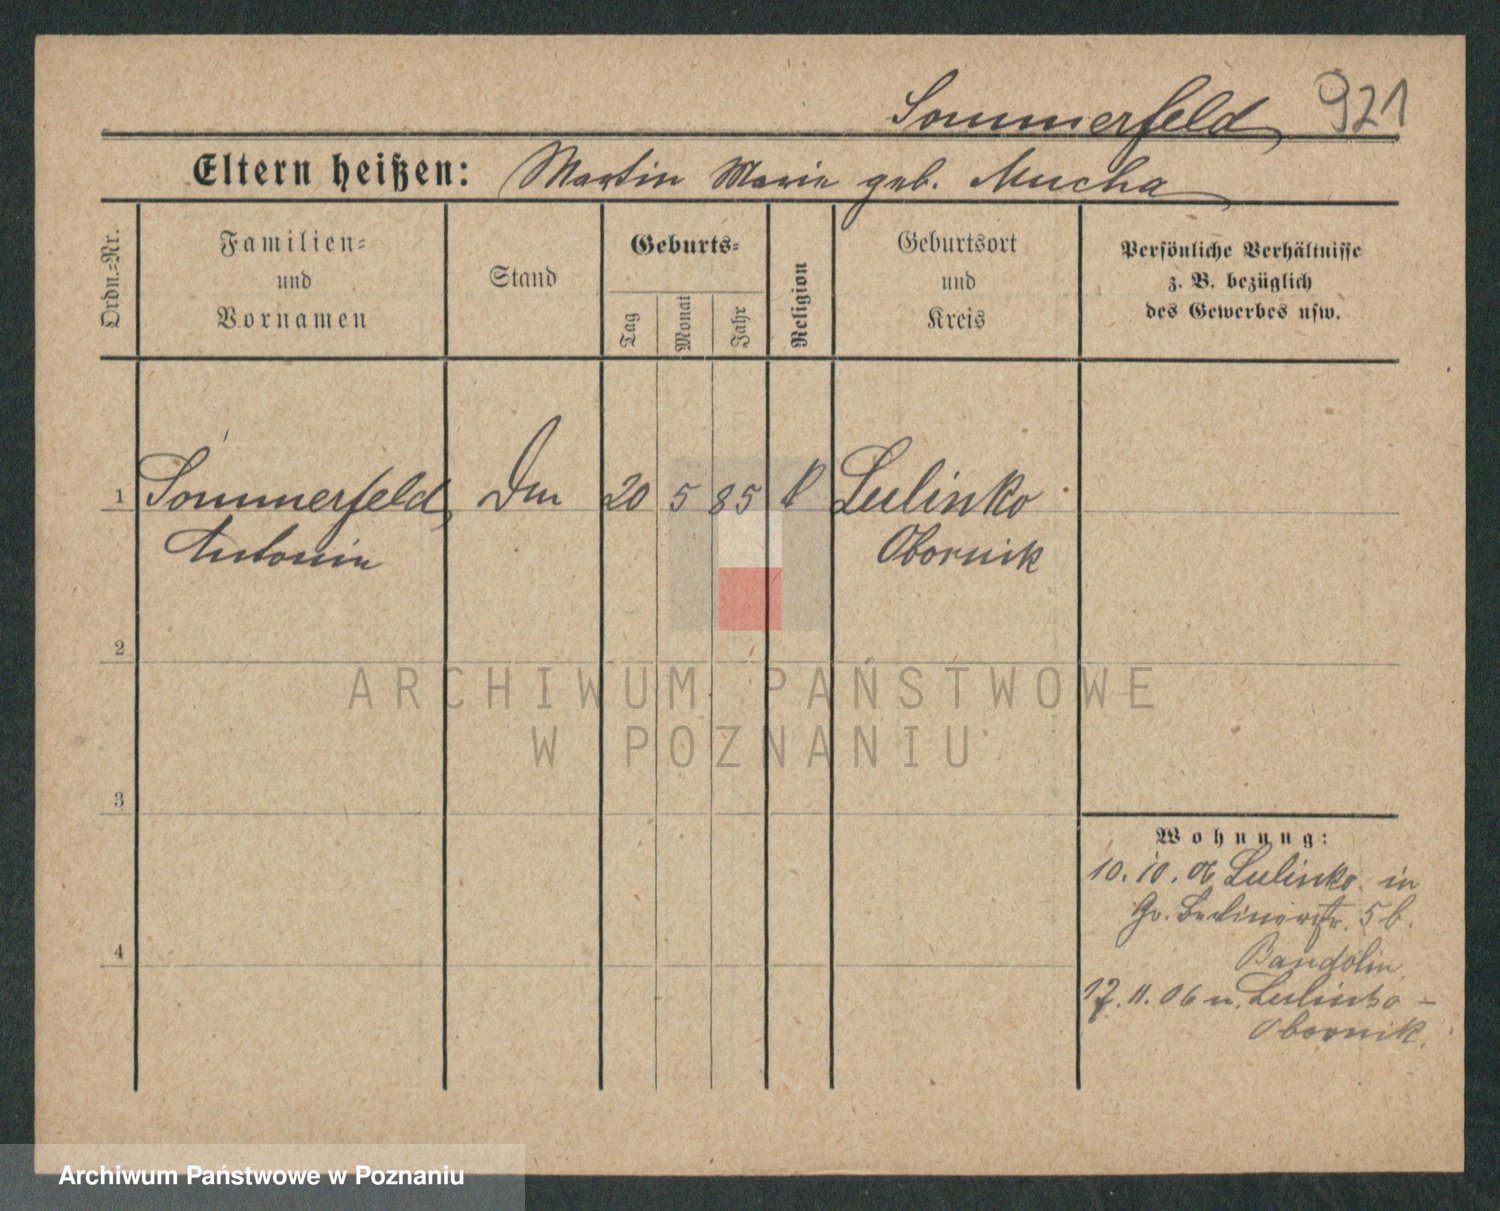 Sommerfeld, 921
Eltern heißen: Martin Marie geb. Mucha
Ordn.=Nr.
Familien=
und
Vornamen
Stand
Geburts=
Tag
Monat
Jahr
Religion
Geburtsort
und
Kreis
Persönliche Verhältnisse
z. B. bezüglich
des Gewerbes usw.
1 Sommerfeld, 20 5 85 k Lulinko
Antonin Obornik
2
3
4
Wohnung:
10. 10. 06 Lulinko in
Gr. Berlinerstr. 5 b.
Bandolin
17. 11. 06 n. Lulinko -
Obornik.
ARCHIWUM PAŃSTWOWE
W POZNANIU
Archiwum Państwowe w Poznaniu